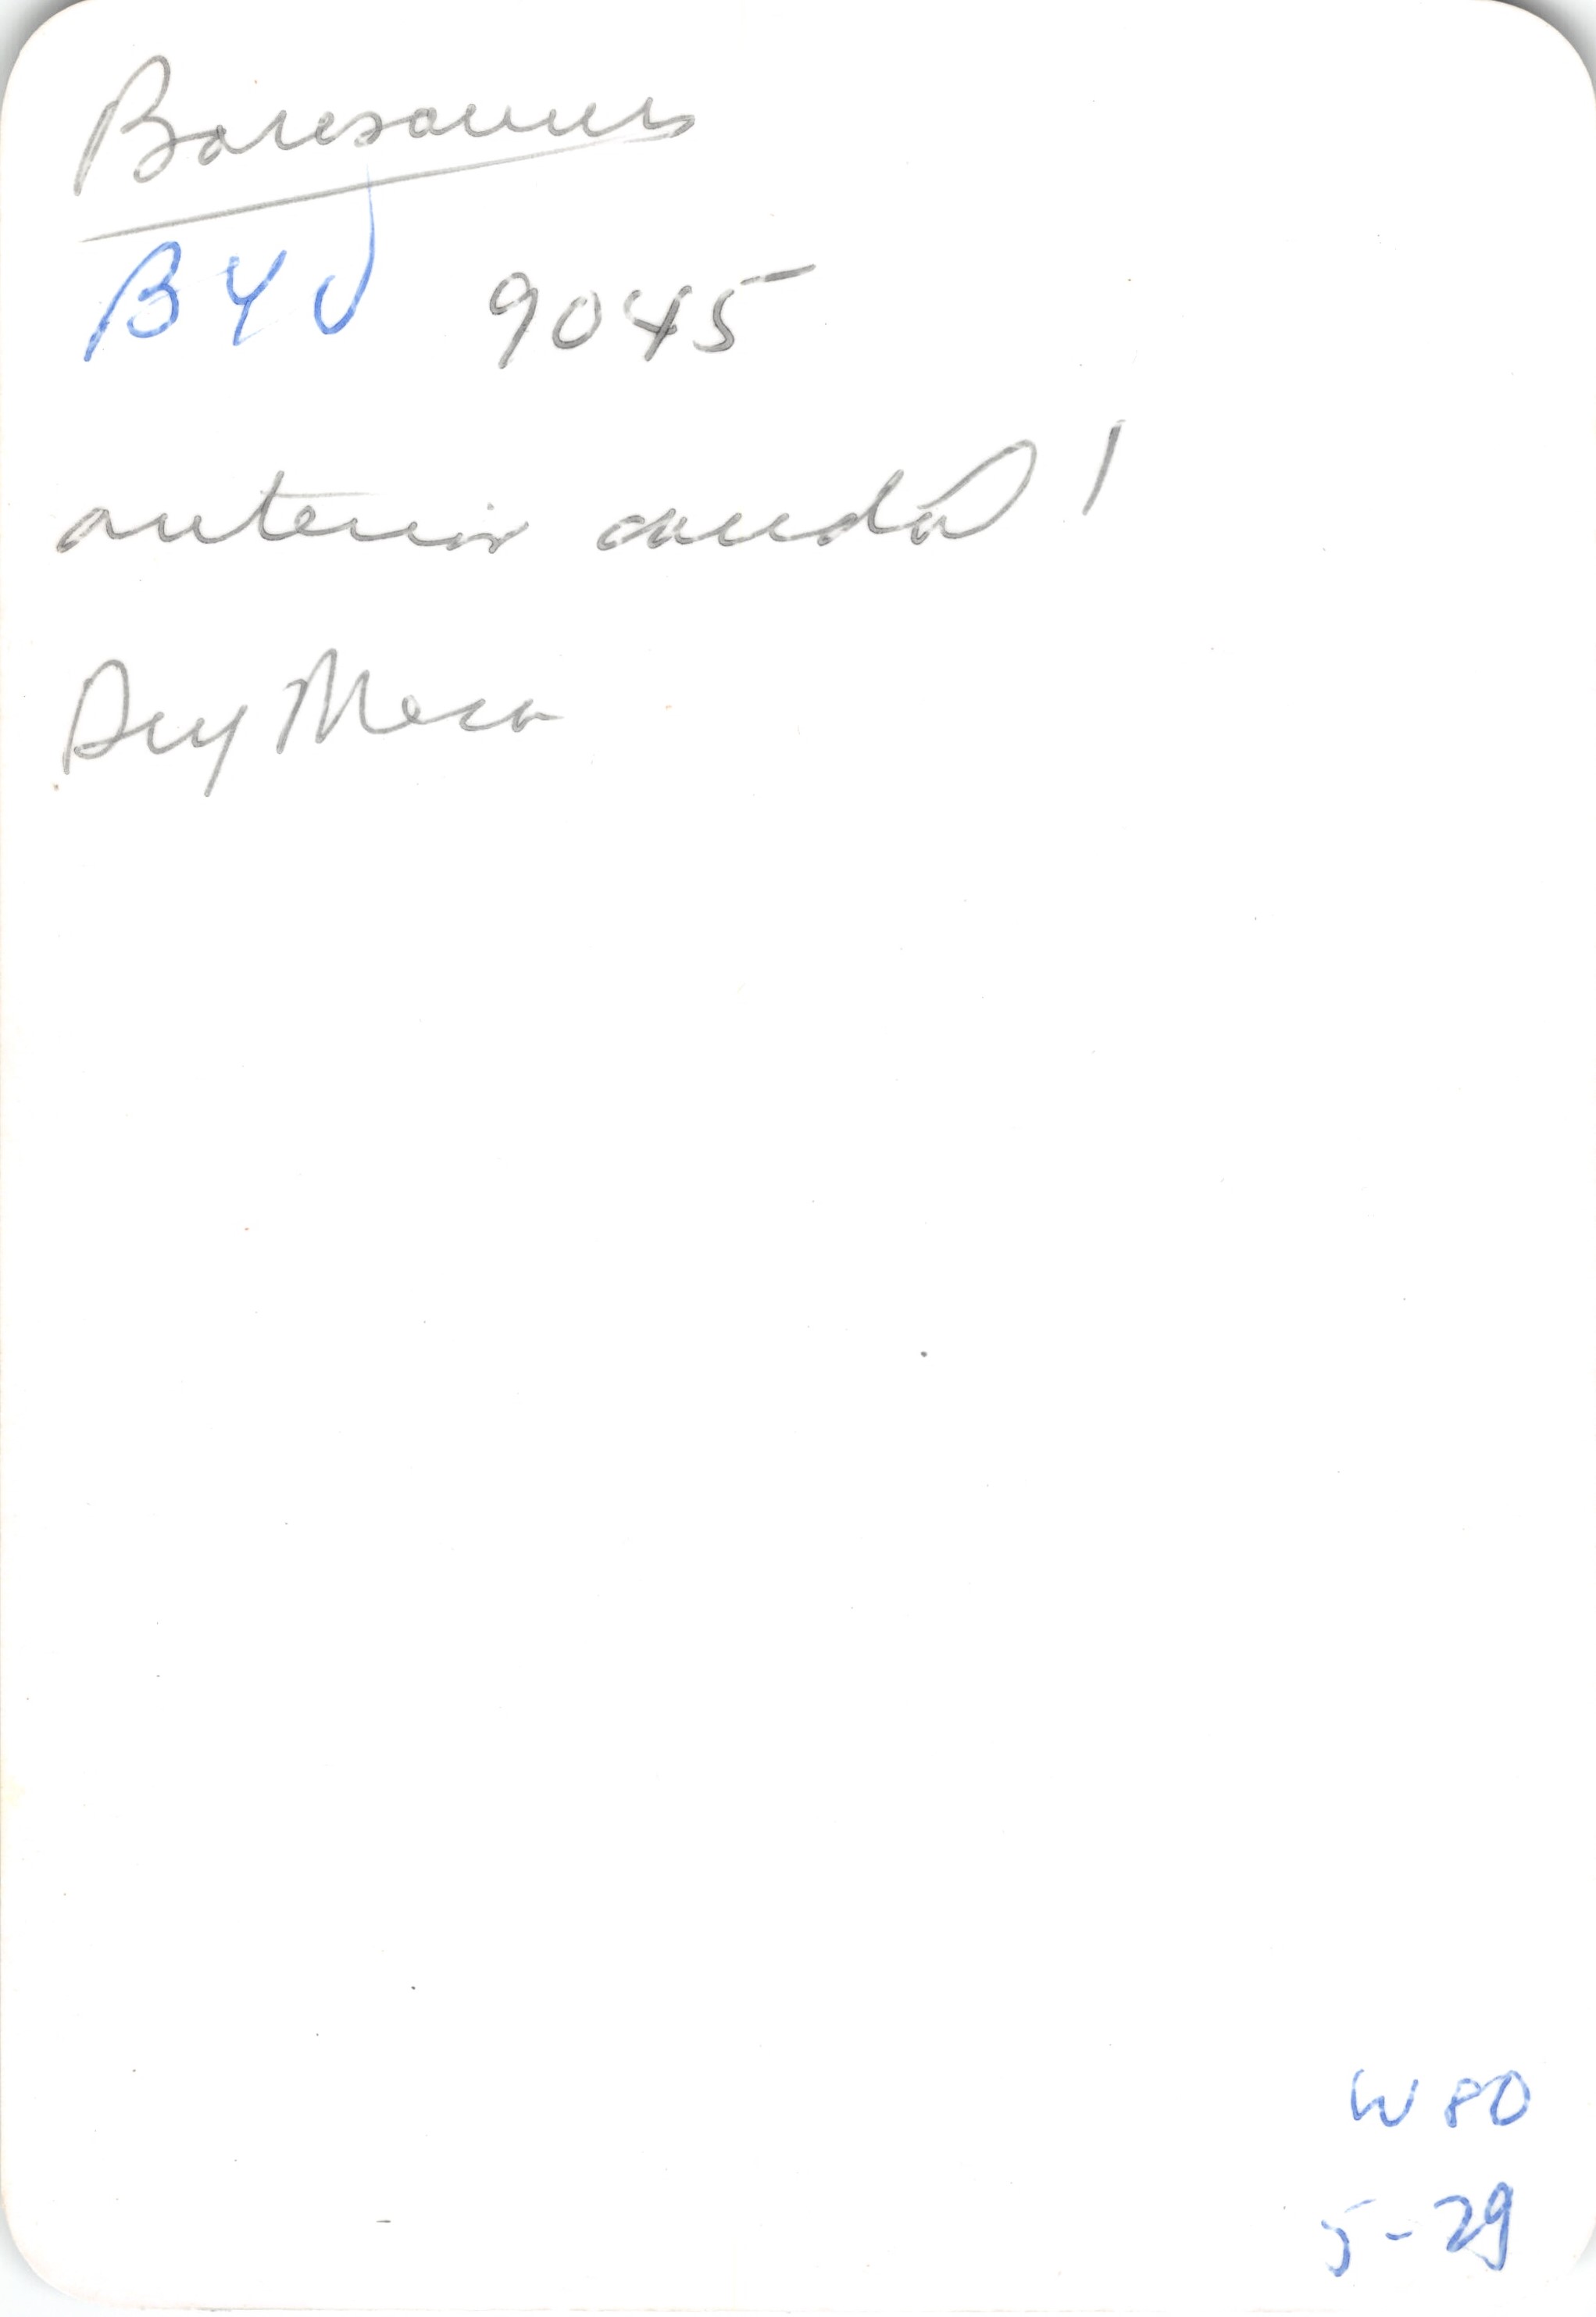 Barosaurus
BYU 9045
anterior caudal!
Dry Mesa
W80
5-29